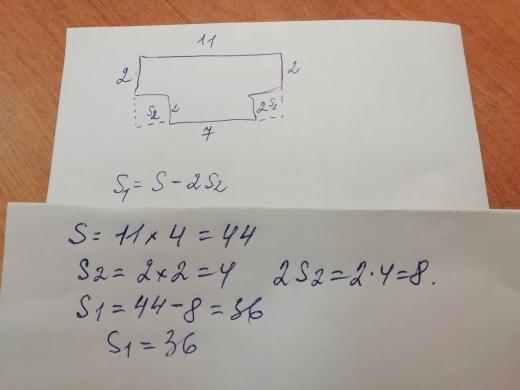 11
2 2
S2 2 2 S2
7
S1 = S - 2S2
S = 11 × 4 = 44
S2 = 2 × 2 = 4 2S2 = 2 · 4 = 8.
S1 = 44 - 8 = 36
S1 = 36